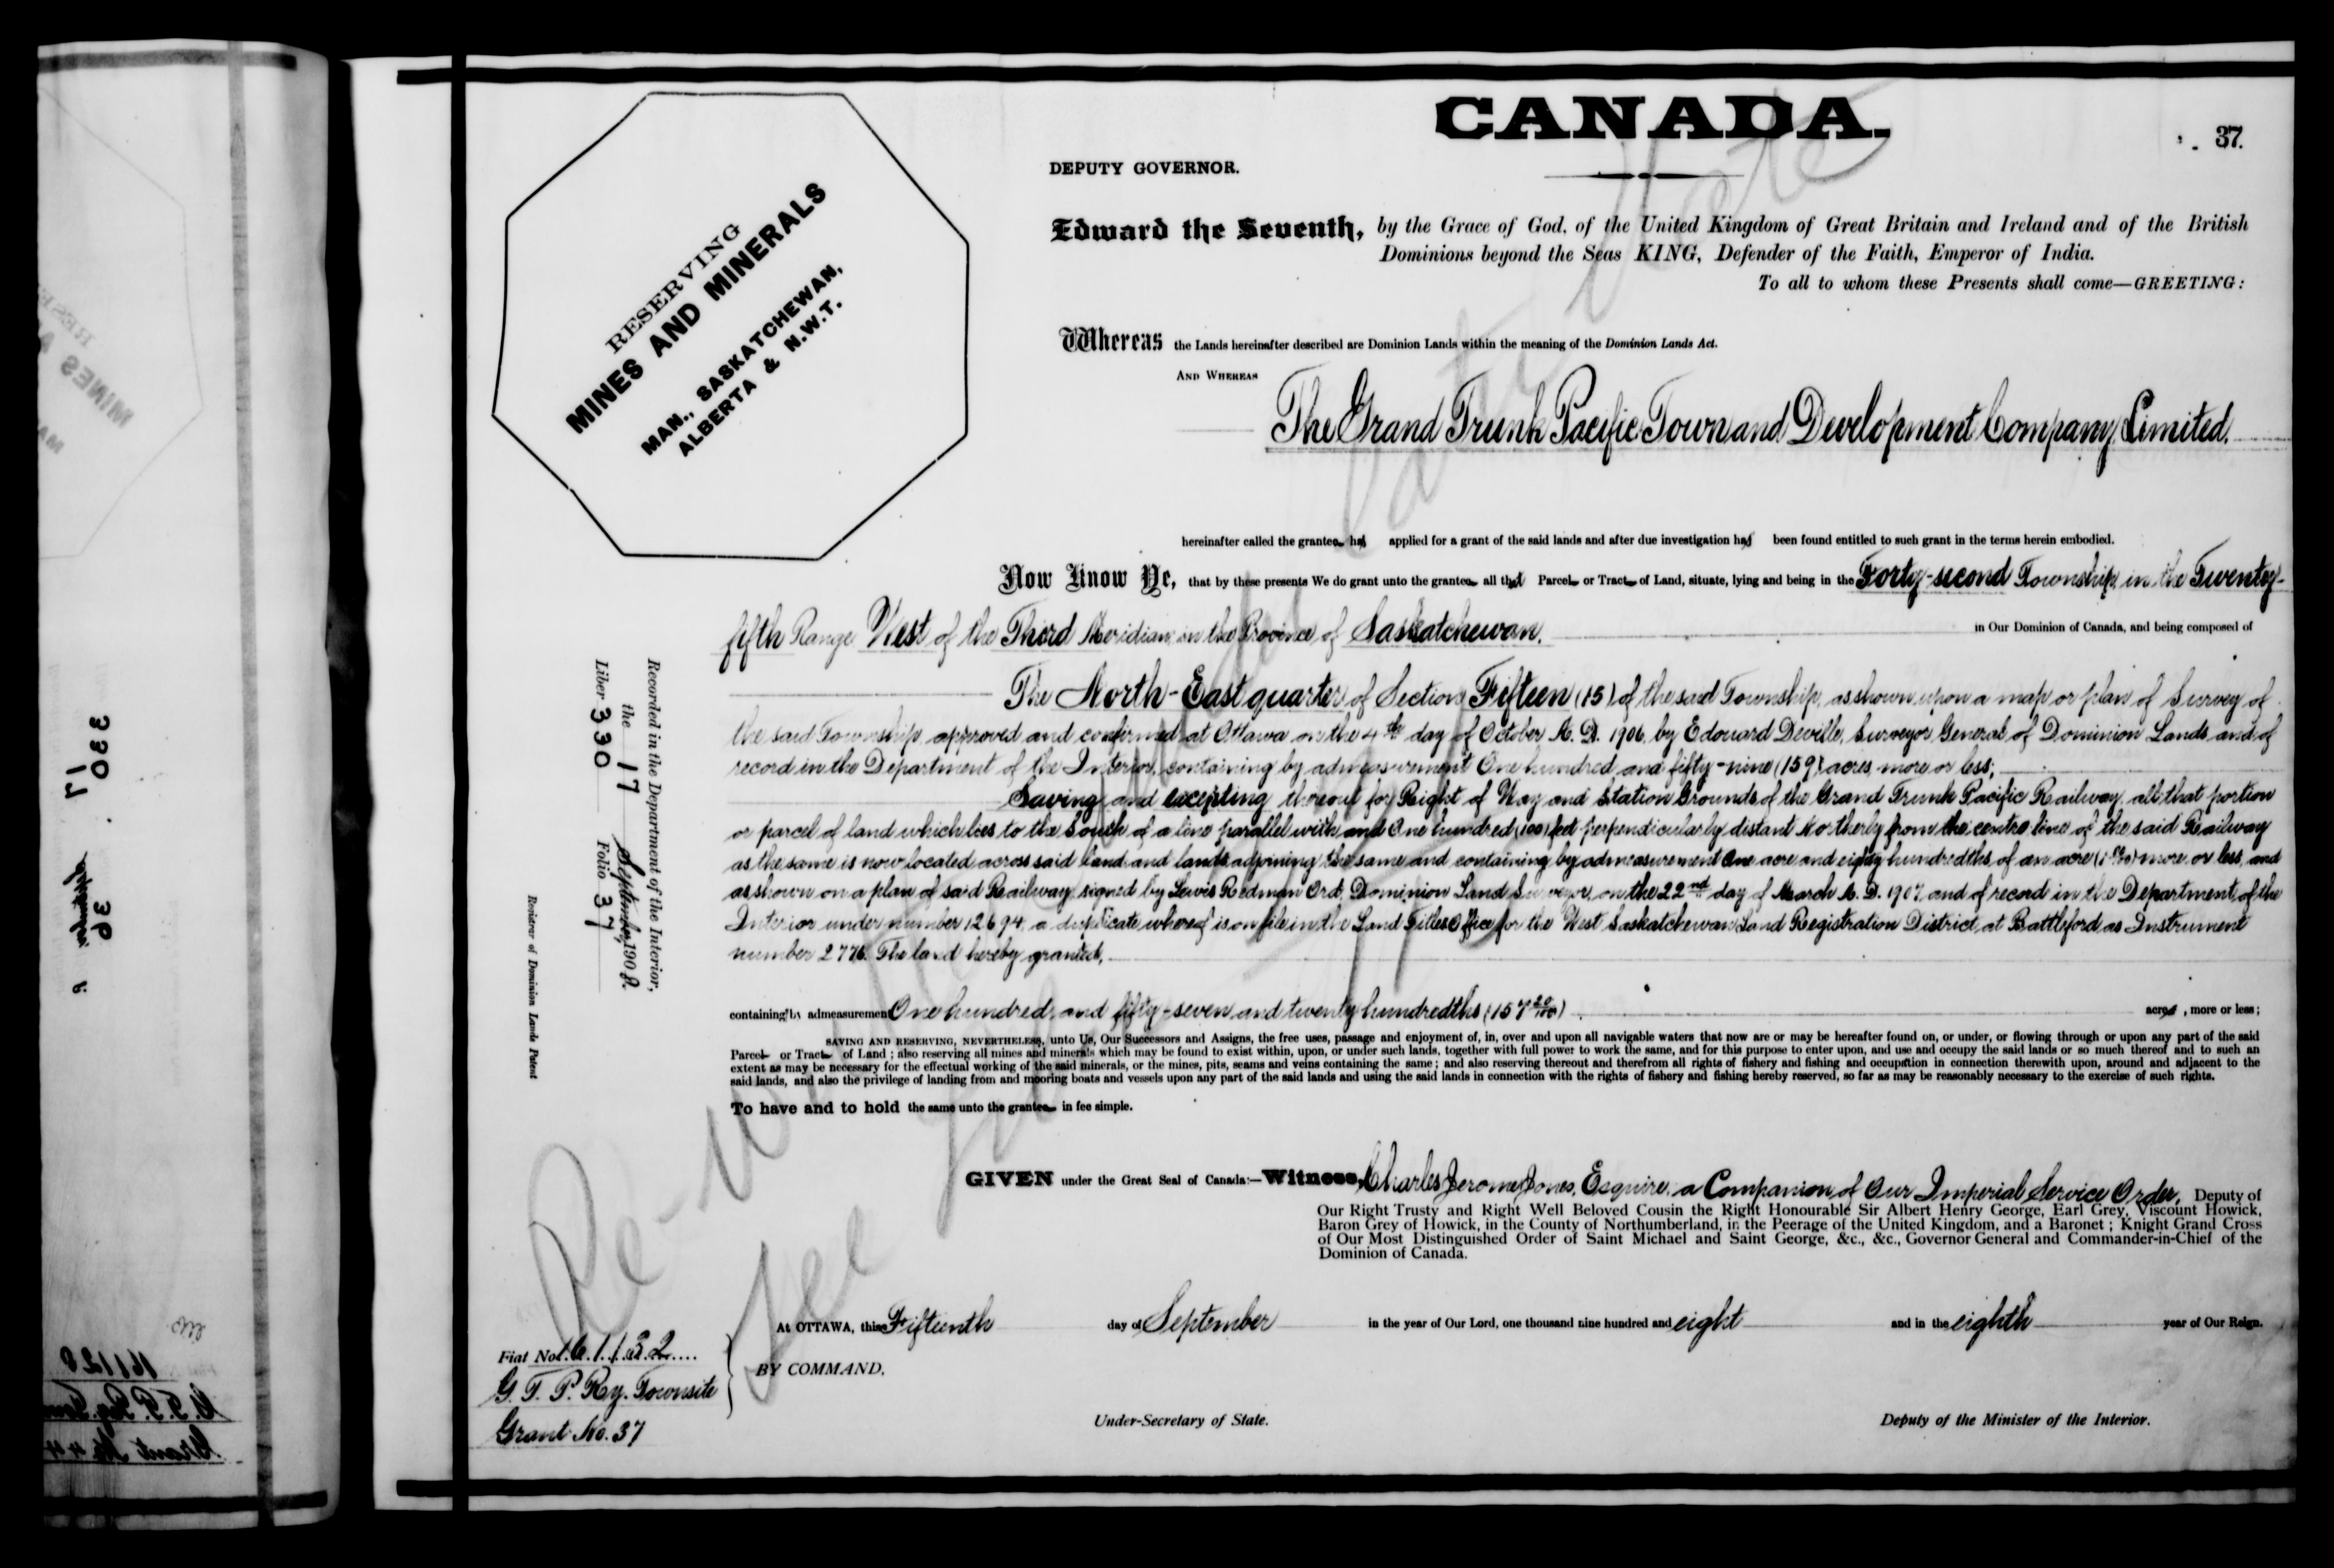 CANADA.
37.
DEPUTY GOVERNOR.
RESERVING
MINES AND MINERALS
MAN., SASKATCHEWAN,
ALBERTA & N.W.T.
Edward the Seventh, by the Grace of God, of the United Kingdom of Great Britain and Ireland and of the British
Dominions beyond the Seas KING, Defender of the Faith, Emperor of India.
To all to whom these Presents shall come—GREETING:
Whereas the Lands hereinafter described are Dominion Lands within the meaning of the Dominion Lands Act.
AND WHEREAS
The Grand Trunk Pacific Town and Development Company, Limited,
hereinafter called the grantee has applied for a grant of the said lands and after due investigation has been found entitled to such grant in the terms herein embodied.
Now Know Ye, that by these presents We do grant unto the grantee all that Parcel or Tract of Land, situate, lying and being in the Forty-second Township, in the Twenty-
fifth Range West of the Third Meridian in the Province of Saskatchewan, in Our Dominion of Canada, and being composed of
The North-East quarter of Section Fifteen (15) of the said Township, as shown upon a map or plan of Survey of
the said Township, approved and confirmed at Ottawa on the 4th day of October A. D. 1906, by Edouard Deville, Surveyor General of Dominion Lands and of
record in the Department of the Interior, containing by admeasurement One hundred and fifty-nine (159) acres, more or less;
Saving and excepting thereout for Right of Way and Station Grounds of the Grand Trunk Pacific Railway, all that portion
or parcel of land which lies to the South of a line parallel with and One hundred (100) feet perpendicularly distant Northerly from the centre line of the said Railway
as the same is now located across said land and lands adjoining the same and containing by admeasurement One acre and eighty hundredths of an acre (1 80/100) more or less, and
as shown on a plan of said Railway, signed by Lewis Redman Ord, Dominion Land Surveyor, on the 22nd day of March A. D. 1907, and of record in the Department of the
Interior under number 12694, a duplicate whereof is on file in the Land Titles Office for the West Saskatchewan Land Registration District, at Battleford as Instrument
number 2776. The land hereby granted,
containing by admeasurement One hundred and fifty-seven and twenty hundredths (157 20/100) acres, more or less;
SAVING AND RESERVING, NEVERTHELESS, unto Us, Our Successors and Assigns, the free uses, passage and enjoyment of, in, over and upon all navigable waters that now are or may be hereafter found on, or under, or flowing through or upon any part of the said
Parcel or Tract of Land; also reserving all mines and minerals which may be found to exist within, upon, or under such lands, together with full power to work the same, and for this purpose to enter upon, and use and occupy the said lands or so much thereof and to such an
extent as may be necessary for the effectual working of the said minerals, or the mines, pits, seams and veins containing the same; and also reserving thereout and therefrom all rights of fishery and fishing and occupation in connection therewith upon, around and adjacent to the
said lands, and also the privilege of landing from and mooring boats and vessels upon any part of the said lands and using the said lands in connection with the rights of fishery and fishing hereby reserved, so far as may be reasonably necessary to the exercise of such rights.
To have and to hold the same unto the grantee in fee simple.
Recorded in the Department of the Interior,
the 17 September, 1908.
Liber 330 Folio 37
Registrar of Dominion Lands Patent
GIVEN under the Great Seal of Canada:—Witness, Charles Jerome Jones, Esquire, a Companion of Our Imperial Service Order, Deputy of
Our Right Trusty and Right Well Beloved Cousin the Right Honourable Sir Albert Henry George, Earl Grey, Viscount Howick,
Baron Grey of Howick, in the County of Northumberland, in the Peerage of the United Kingdom, and a Baronet; Knight Grand Cross
of Our Most Distinguished Order of Saint Michael and Saint George, &c., &c., Governor General and Commander-in-Chief of the
Dominion of Canada.
At OTTAWA, this Fifteenth day of September in the year of Our Lord, one thousand nine hundred and eight and in the eighth year of Our Reign.
BY COMMAND.
Fiat No. 161132
G. T. P. Ry. Townsite
Grant No. 37
Under-Secretary of State.
Deputy of the Minister of the Interior.